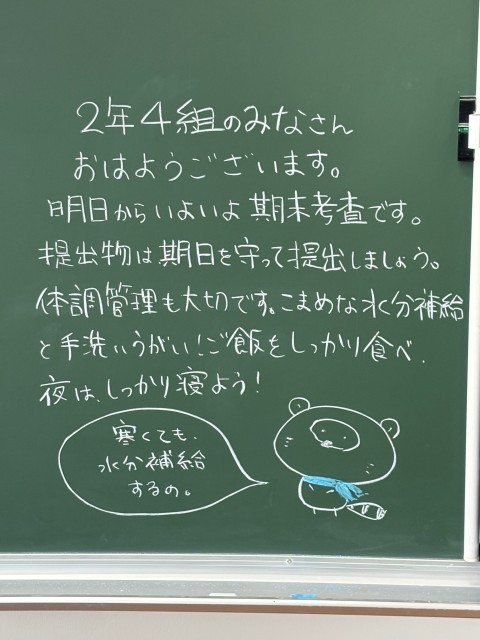 2年4組のみなさん
おはようございます。
明日からいよいよ期末考査です。
提出物は期日を守って提出しましょう。
体調管理も大切です。こまめな水分補給
と手洗いうがい！ご飯をしっかり食べ、
夜は、しっかり寝よう！
寒くても、
水分補給
するの。